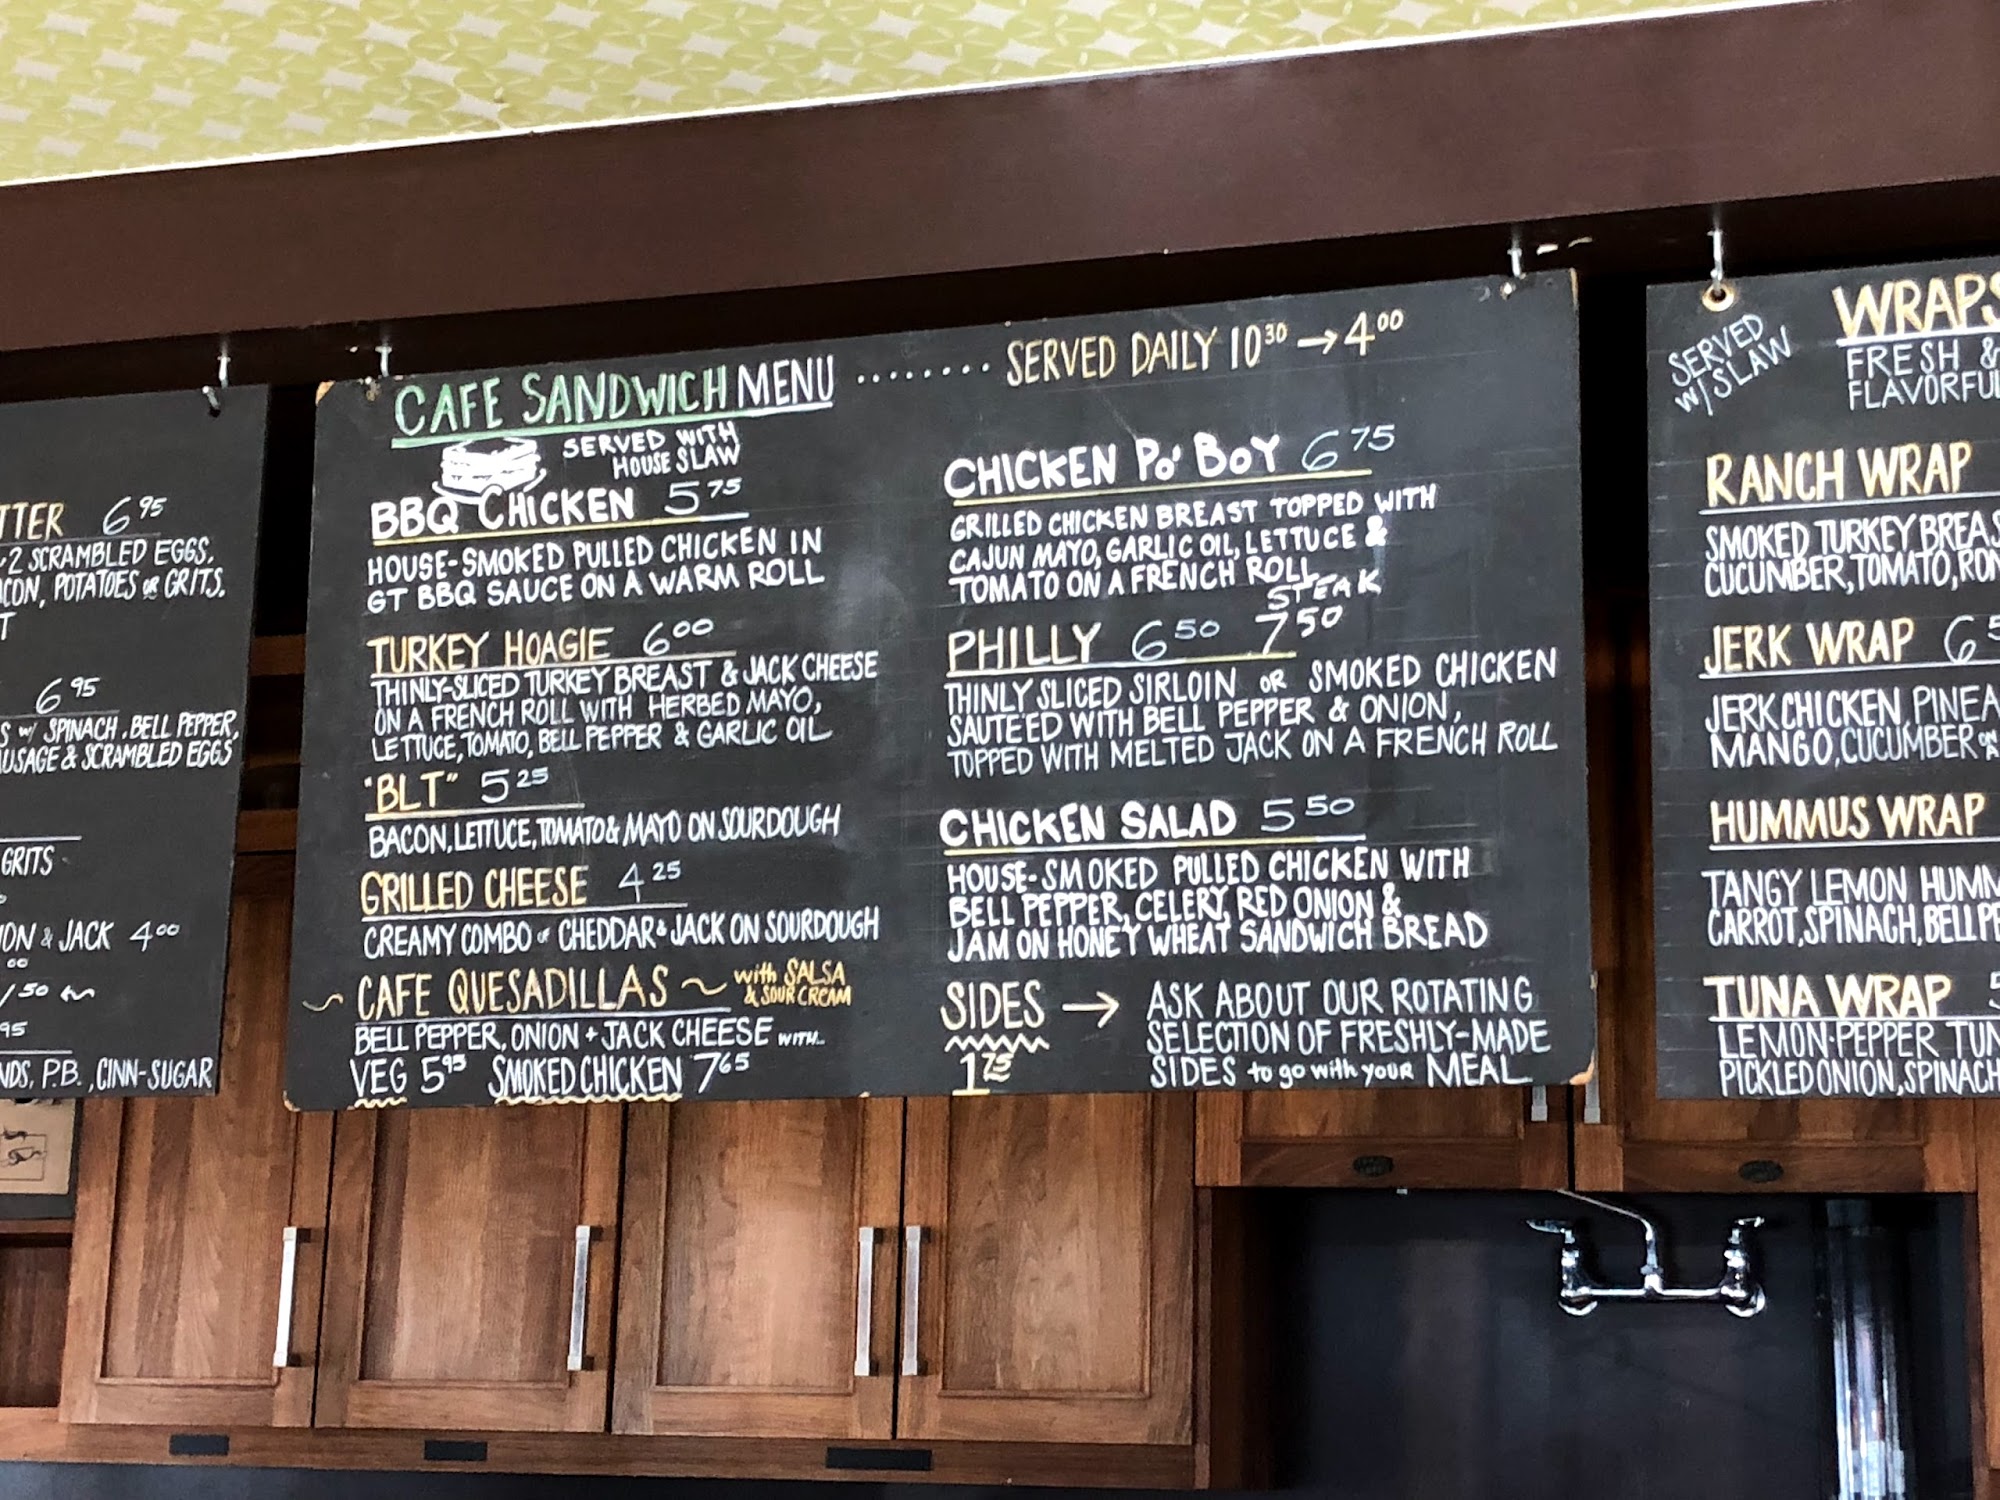 6 95
2 SCRAMBLED EGGS,
POTATOES OR GRITS.
6 95
w/ SPINACH, BELL PEPPER,
& SCRAMBLED EGGS
GRITS
& JACK 4 00
P.B., CINN-SUGAR
CAFE SANDWICH MENU ........ SERVED DAILY 10 30 → 4 00
SERVED WITH
HOUSE SLAW
BBQ CHICKEN 5 75
HOUSE-SMOKED PULLED CHICKEN IN
GT BBQ SAUCE ON A WARM ROLL
TURKEY HOAGIE 6 00
THINLY-SLICED TURKEY BREAST & JACK CHEESE
ON A FRENCH ROLL WITH HERBED MAYO,
LETTUCE, TOMATO, BELL PEPPER & GARLIC OIL
"BLT" 5 25
BACON, LETTUCE, TOMATO & MAYO ON SOURDOUGH
GRILLED CHEESE 4 25
CREAMY COMBO OF CHEDDAR & JACK ON SOURDOUGH
~ CAFE QUESADILLAS ~ with SALSA
& SOUR CREAM
BELL PEPPER, ONION + JACK CHEESE WITH..
VEG 5 95 SMOKED CHICKEN 7 65
CHICKEN PO' BOY 6 75
GRILLED CHICKEN BREAST TOPPED WITH
CAJUN MAYO, GARLIC OIL, LETTUCE &
TOMATO ON A FRENCH ROLL
STEAK
PHILLY 6 50 7 50
THINLY SLICED SIRLOIN OR SMOKED CHICKEN
SAUTE'ED WITH BELL PEPPER & ONION,
TOPPED WITH MELTED JACK ON A FRENCH ROLL
CHICKEN SALAD 5 50
HOUSE-SMOKED PULLED CHICKEN WITH
BELL PEPPER, CELERY, RED ONION &
JAM ON HONEY WHEAT SANDWICH BREAD
SIDES → ASK ABOUT OUR ROTATING
SELECTION OF FRESHLY-MADE
1 75 SIDES to go with your MEAL
SERVED
W/ SLAW
WRAPS
FRESH &
FLAVORFUL
RANCH WRAP
SMOKED TURKEY BREAS
CUCUMBER, TOMATO,
JERK WRAP 6
JERK CHICKEN,
MANGO, CUCUMBER
HUMMUS WRAP
TANGY LEMON
CARROT, SPINACH, BELL
TUNA WRAP
LEMON-PEPPER
PICKLED ONION, SPINACH